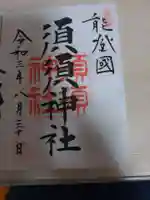 能登國
須須神社
令和三年八月三十日